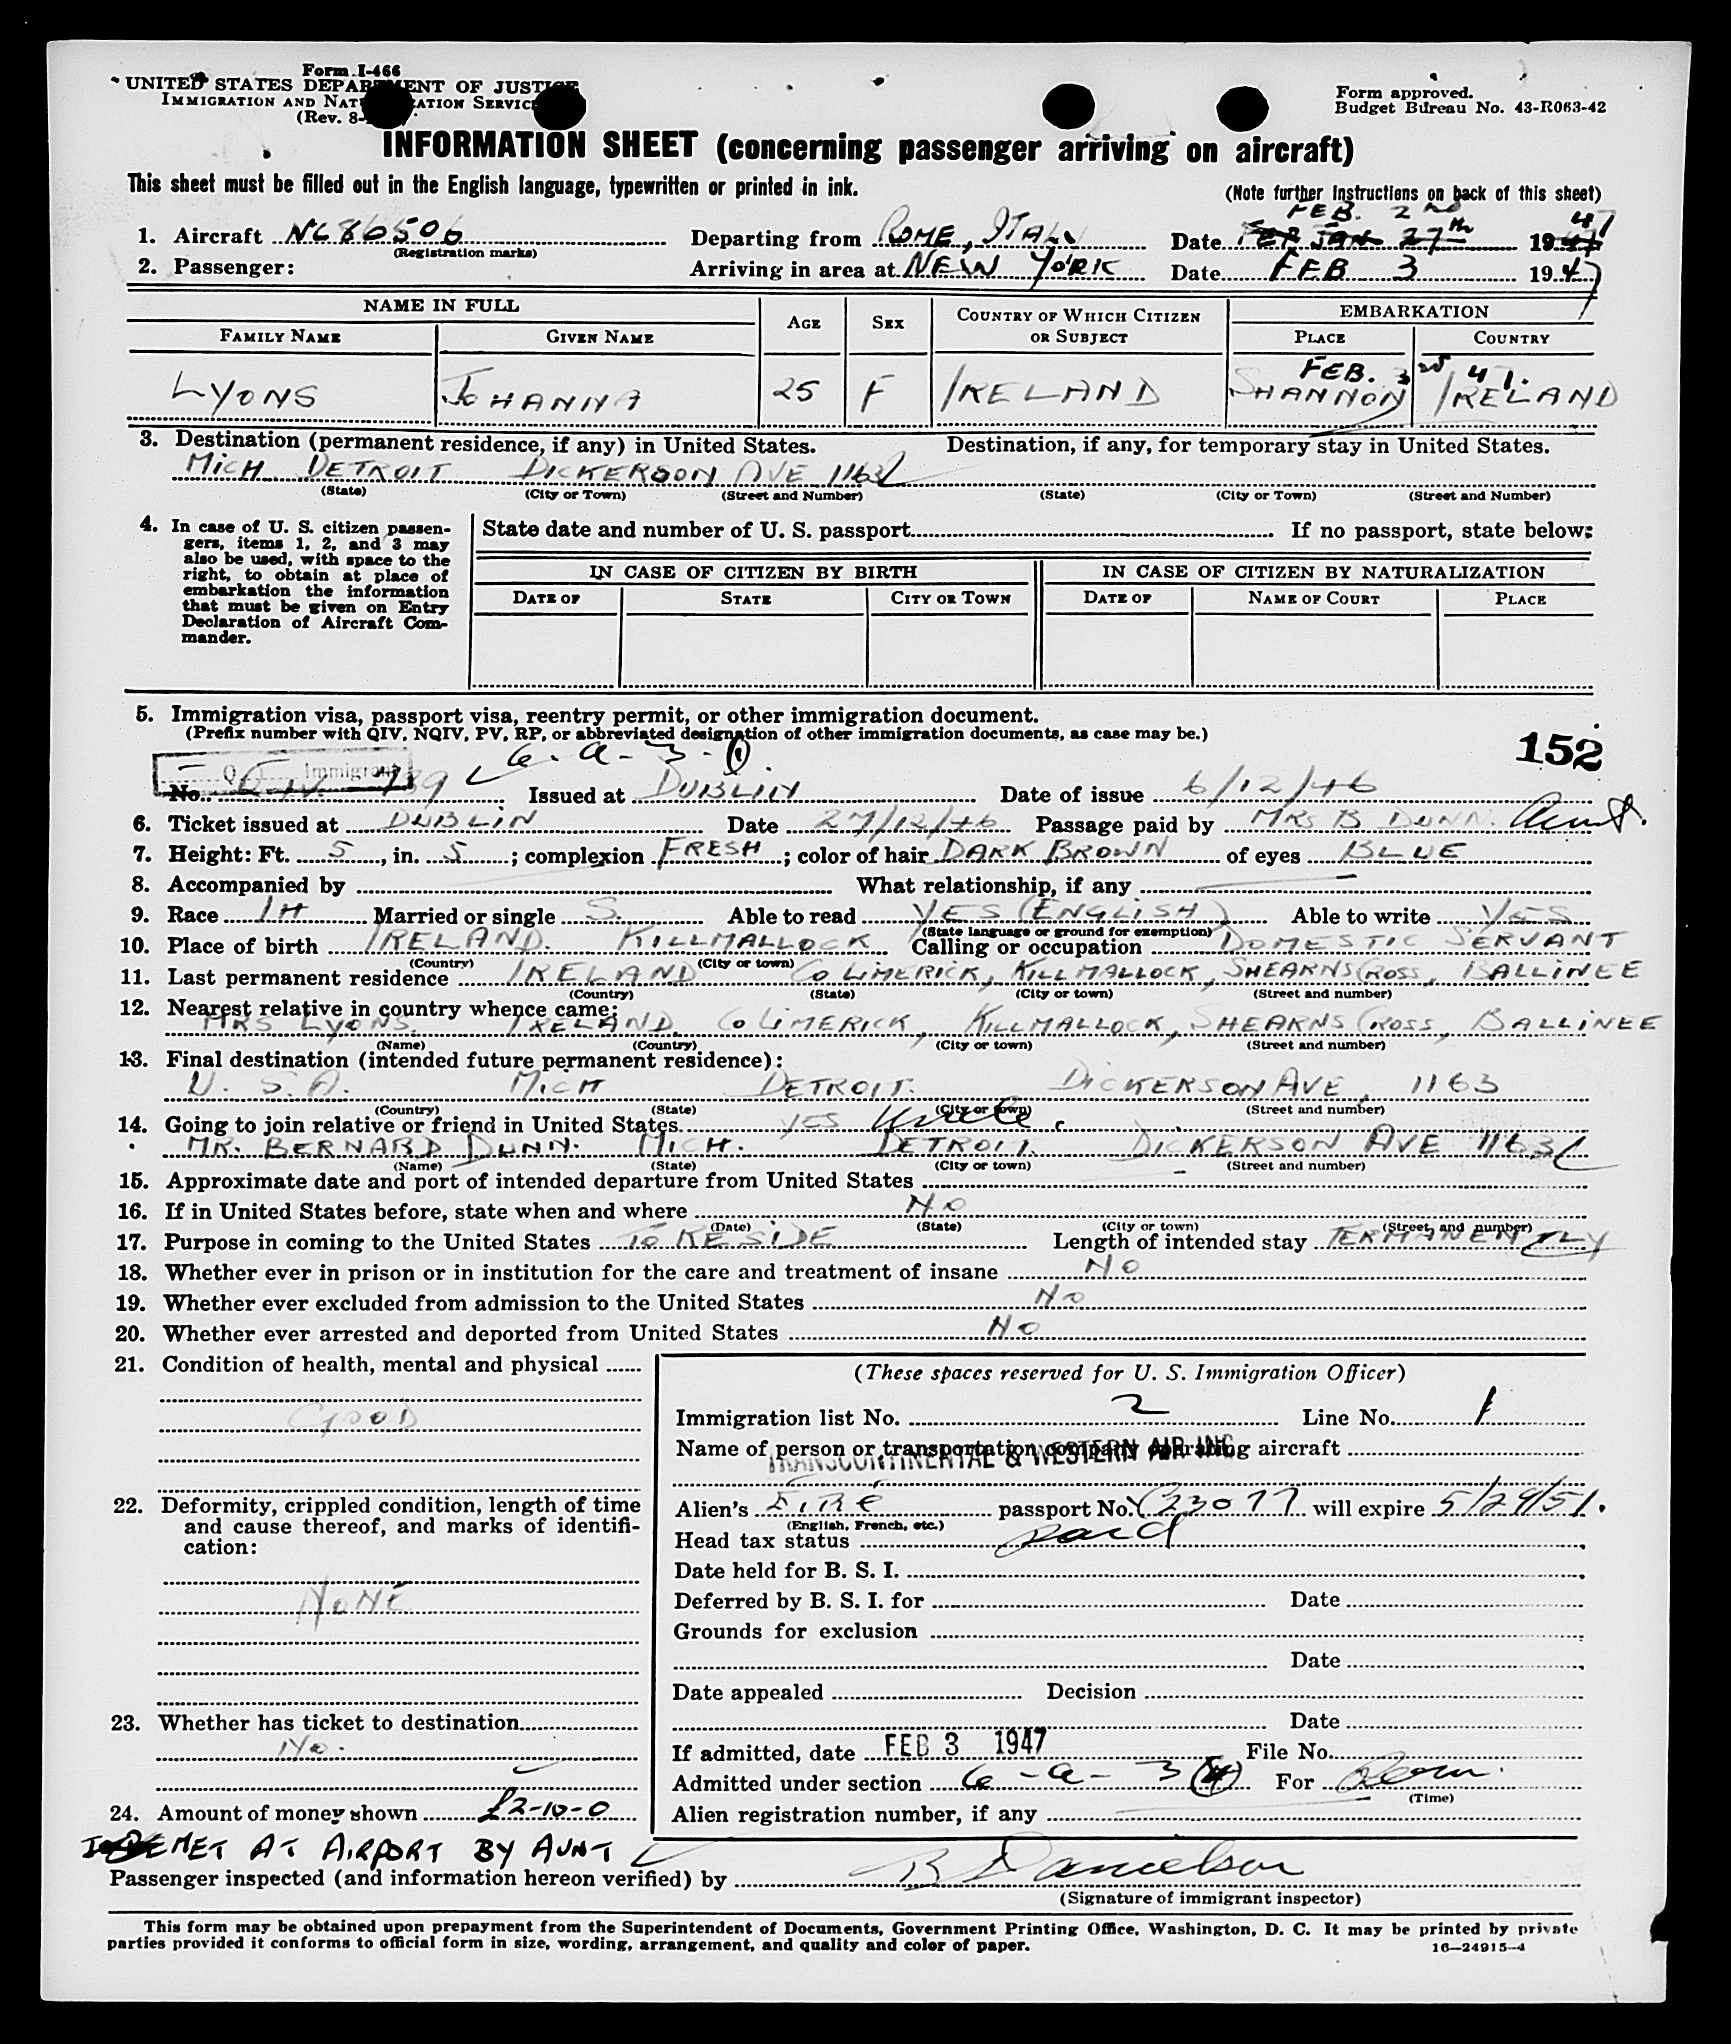 Form I-466
UNITED STATES DEPARTMENT OF JUSTICE
IMMIGRATION AND NATURALIZATION SERVICE
(Rev. 8-
Form approved.
Budget Bureau No. 43-R063-42
INFORMATION SHEET (concerning passenger arriving on aircraft)
This sheet must be filled out in the English language, typewritten or printed in ink.
(Note further instructions on back of this sheet)
FEB. 2ND 47
1. Aircraft NC86506 Departing from ROME, ITALY Date JAN 27th 19
(Registration marks)
2. Passenger: Arriving in area at NEW YORK Date FEB 3 1947
NAME IN FULL AGE SEX COUNTRY OF WHICH CITIZEN OR SUBJECT EMBARKATION
FAMILY NAME GIVEN NAME PLACE COUNTRY
FEB. 47.
LYONS JOHANNA 25 F IRELAND SHANNON IRELAND
3. Destination (permanent residence, if any) in United States. Destination, if any, for temporary stay in United States.
MICH DETROIT DICKERSON AVE 1163
(State) (City or Town) (Street and Number) (State) (City or Town) (Street and Number)
4. In case of U. S. citizen passen-
gers, items 1, 2, and 3 may
also be used, with space to the
right, to obtain at place of
embarkation the information
that must be given on Entry
Declaration of Aircraft Com-
mander.
State date and number of U. S. passport If no passport, state below:
IN CASE OF CITIZEN BY BIRTH IN CASE OF CITIZEN BY NATURALIZATION
DATE OF STATE CITY OR TOWN DATE OF NAME OF COURT PLACE
5. Immigration visa, passport visa, reentry permit, or other immigration document.
(Prefix number with QIV, NQIV, PV, RP, or abbreviated designation of other immigration documents, as case may be.)
152
6-a-3-
Q Immigrant
No. Issued at DUBLIN Date of issue 6/12/46
6. Ticket issued at DUBLIN Date 27/12/46 Passage paid by MRS B DUNN. Aunt.
7. Height: Ft. 5, in. 5; complexion FRESH; color of hair DARK BROWN of eyes BLUE
8. Accompanied by What relationship, if any
9. Race IH Married or single S. Able to read YES (ENGLISH) Able to write YES
(State language or ground for exemption)
10. Place of birth IRELAND. KILLMALLOCK Calling or occupation DOMESTIC SERVANT
(Country) (City or town)
11. Last permanent residence IRELAND CO LIMERICK, KILLMALLOCK, SHEARNS CROSS, BALLINEE
(Country) (State) (City or town) (Street and number)
12. Nearest relative in country whence came:
MRS LYONS. IRELAND. CO LIMERICK, KILLMALLOCK, SHEARNS CROSS, BALLINEE
(Name) (Country) (City or town) (Street and number)
13. Final destination (intended future permanent residence):
U. S. A. MICH DETROIT. DICKERSON AVE, 1163
(Country) (State) (City or town) (Street and number)
14. Going to join relative or friend in United States YES Uncle.
MR. BERNARD DUNN. MICH. DETROIT. DICKERSON AVE 1163
(Name) (State) (City or town) (Street and number)
15. Approximate date and port of intended departure from United States
16. If in United States before, state when and where NO
(Date) (State) (City or town) (Street and number)
17. Purpose in coming to the United States TO RESIDE Length of intended stay PERMANENTLY
18. Whether ever in prison or in institution for the care and treatment of insane NO
19. Whether ever excluded from admission to the United States NO
20. Whether ever arrested and deported from United States NO
21. Condition of health, mental and physical
GOOD
22. Deformity, crippled condition, length of time
and cause thereof, and marks of identifi-
cation:
NONE
23. Whether has ticket to destination
No.
24. Amount of money shown £2-10-0
(These spaces reserved for U. S. Immigration Officer)
Immigration list No. 2 Line No. 1
Name of person or transportation company operating aircraft
TRANSCONTINENTAL & WESTERN AIR INC
Alien's EIRE passport No. will expire 5/29/51.
(English, French, etc.)
Head tax status paid
Date held for B. S. I.
Deferred by B. S. I. for Date
Grounds for exclusion
Date
Date appealed Decision
Date
If admitted, date FEB 3 1947 File No.
Admitted under section 6-a-3 (4) For Perm.
(Time)
Alien registration number, if any
MET AT AIRPORT BY AUNT
Passenger inspected (and information hereon verified) by B Danielson
(Signature of immigrant inspector)
This form may be obtained upon prepayment from the Superintendent of Documents, Government Printing Office, Washington, D. C. It may be printed by private
parties provided it conforms to official form in size, wording, arrangement, and quality and color of paper.
16—24915-4